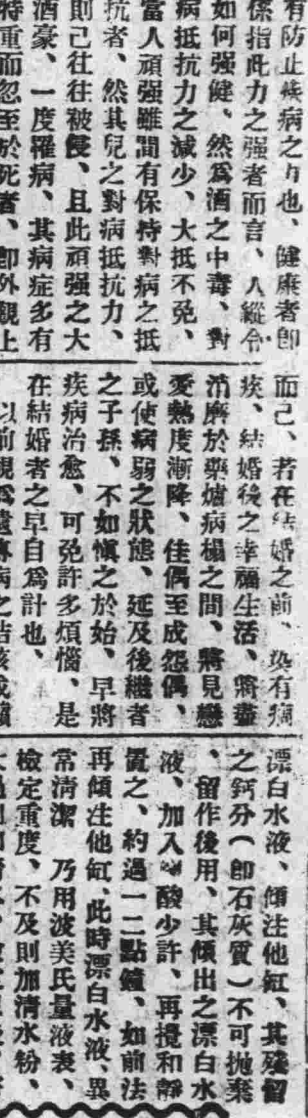 有防止疾病之力也、健康者卽
係指此力之强者而言、人縱令
如何强健、然爲酒之中毒、對
病抵抗力之減少、大抵不免、
當人頑强雖間有保持對病之抵
抗者、然其兒之對病抵抗力、
則己往往被侵、且此頑强之大
酒豪、一度罹病、其病症多有
特重而忽至於死者、卽外觀上
而己、若在結婚之前、染有痼
疾、結婚後之幸福生活、將盡
消磨於藥爐病榻之間、將見戀
愛熱度漸降、佳偶至成怨偶、
或使病弱之狀態、延及後繼者
之子孫、不如愼之於始、早將
疾病治愈、可免許多煩惱、是
在結婚者之早自爲計也、
以前視爲遺傳病之結核或
漂白水液、傾注他缸、其殘留
之鈣分(卽石灰質)不可拋棄
、留作後用、其傾出之漂白水
液、加入酸少許、再攪和靜
置之、約過一二點鐘、如前法
再傾注他缸、此時漂白水液、異
常淸潔 乃用波美氏量液表、
檢定重度、不及則加清水粉、